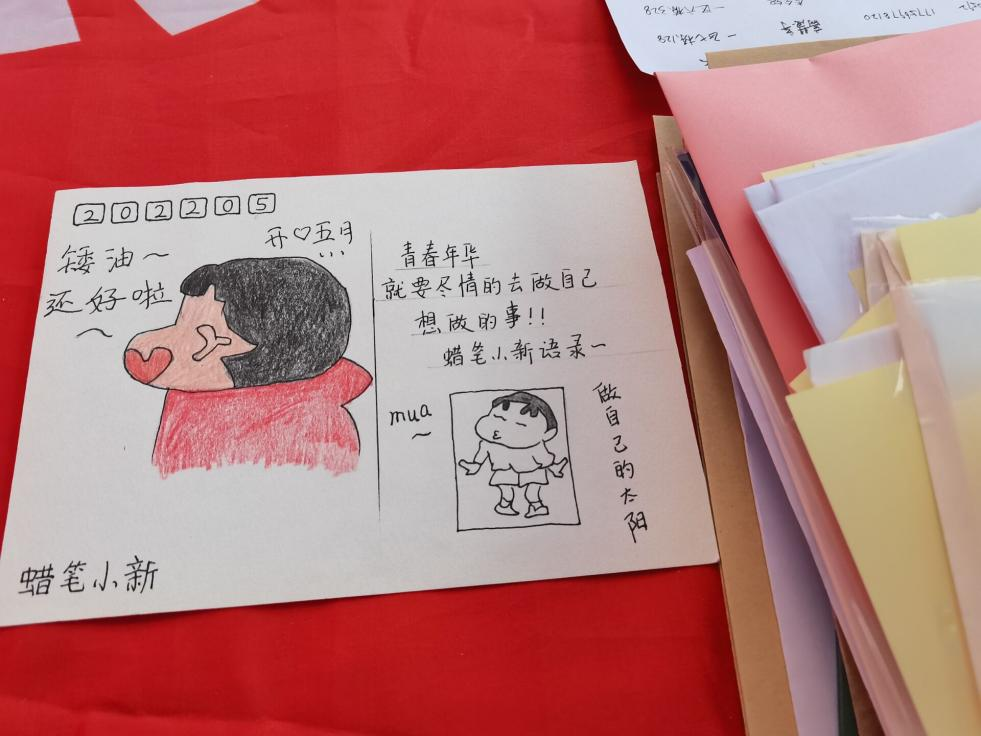 202205
开♡五月...
矮油~
还好啦
~
青春年华
就要尽情的去做自己
想做的事!!
蜡笔小新语录~
mua
~
做自己的太阳
蜡笔小新